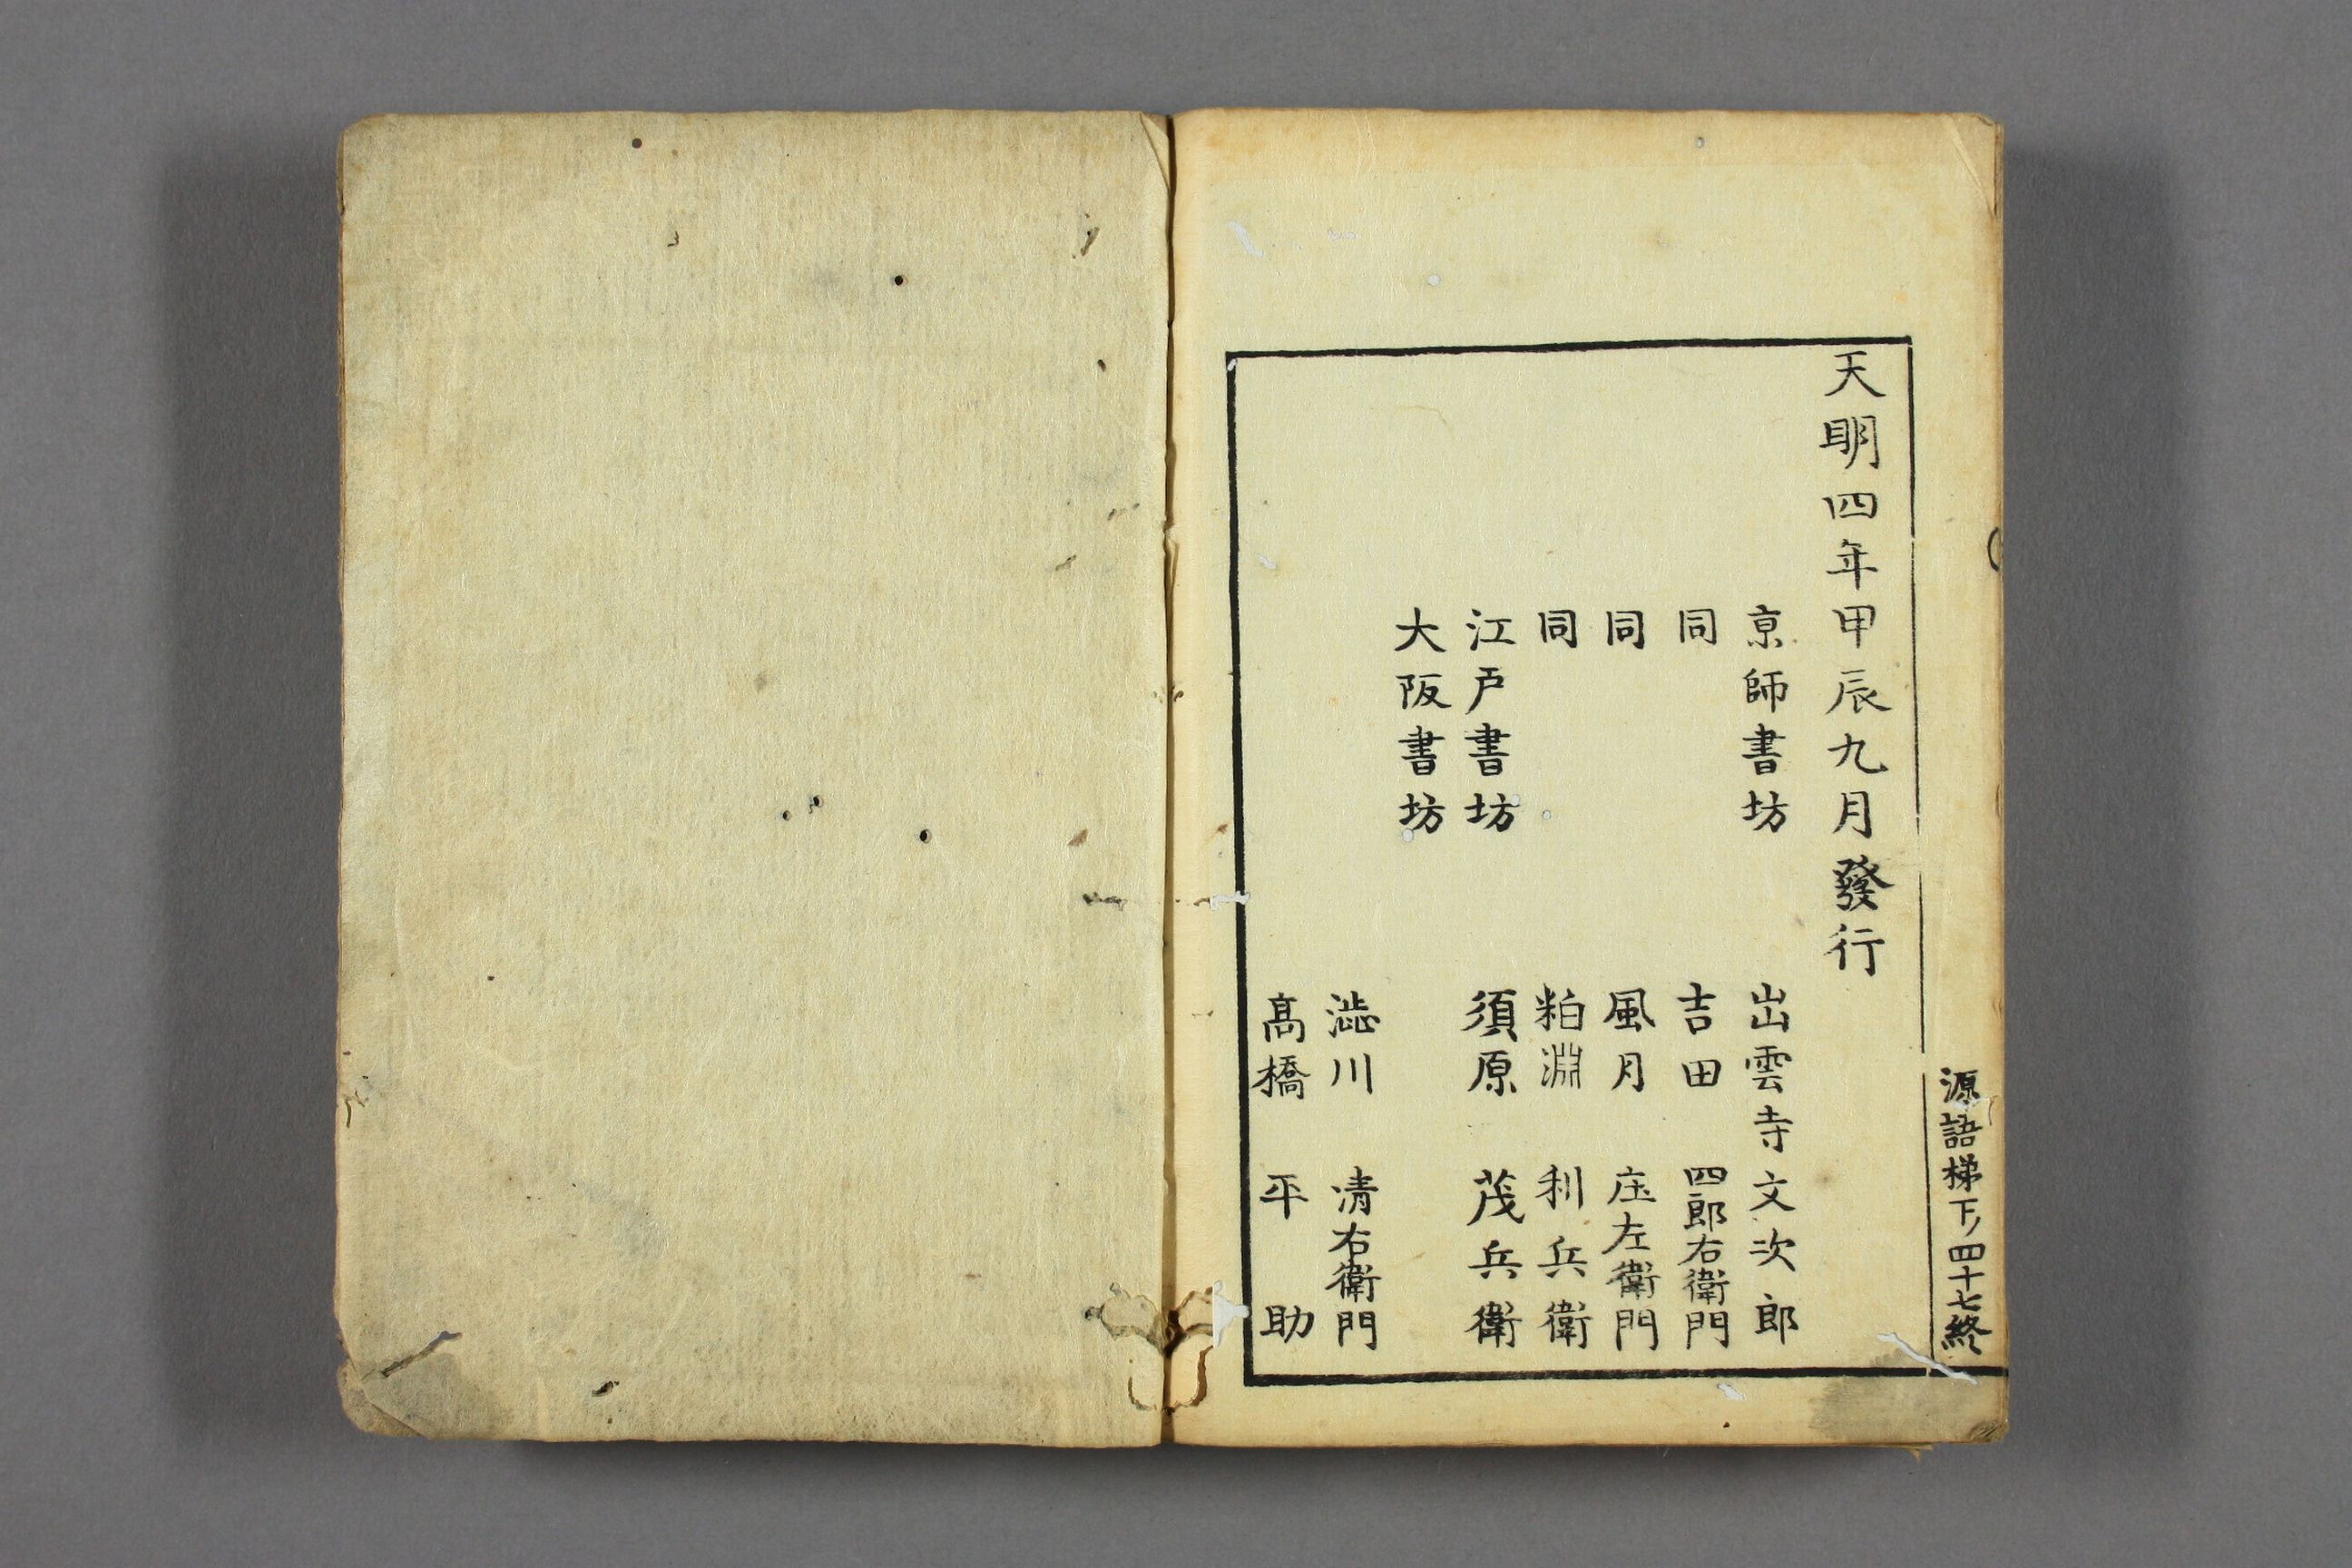 源語梯下ノ四十七終
天明四年甲辰九月發行
京師書坊 出雲寺文次郎
同 吉田四郎右衛門
同 風月庄左衛門
同 粕淵利兵衛
江戸書坊 須原茂兵衛
大阪書坊
澁川清右衛門
髙橋平助